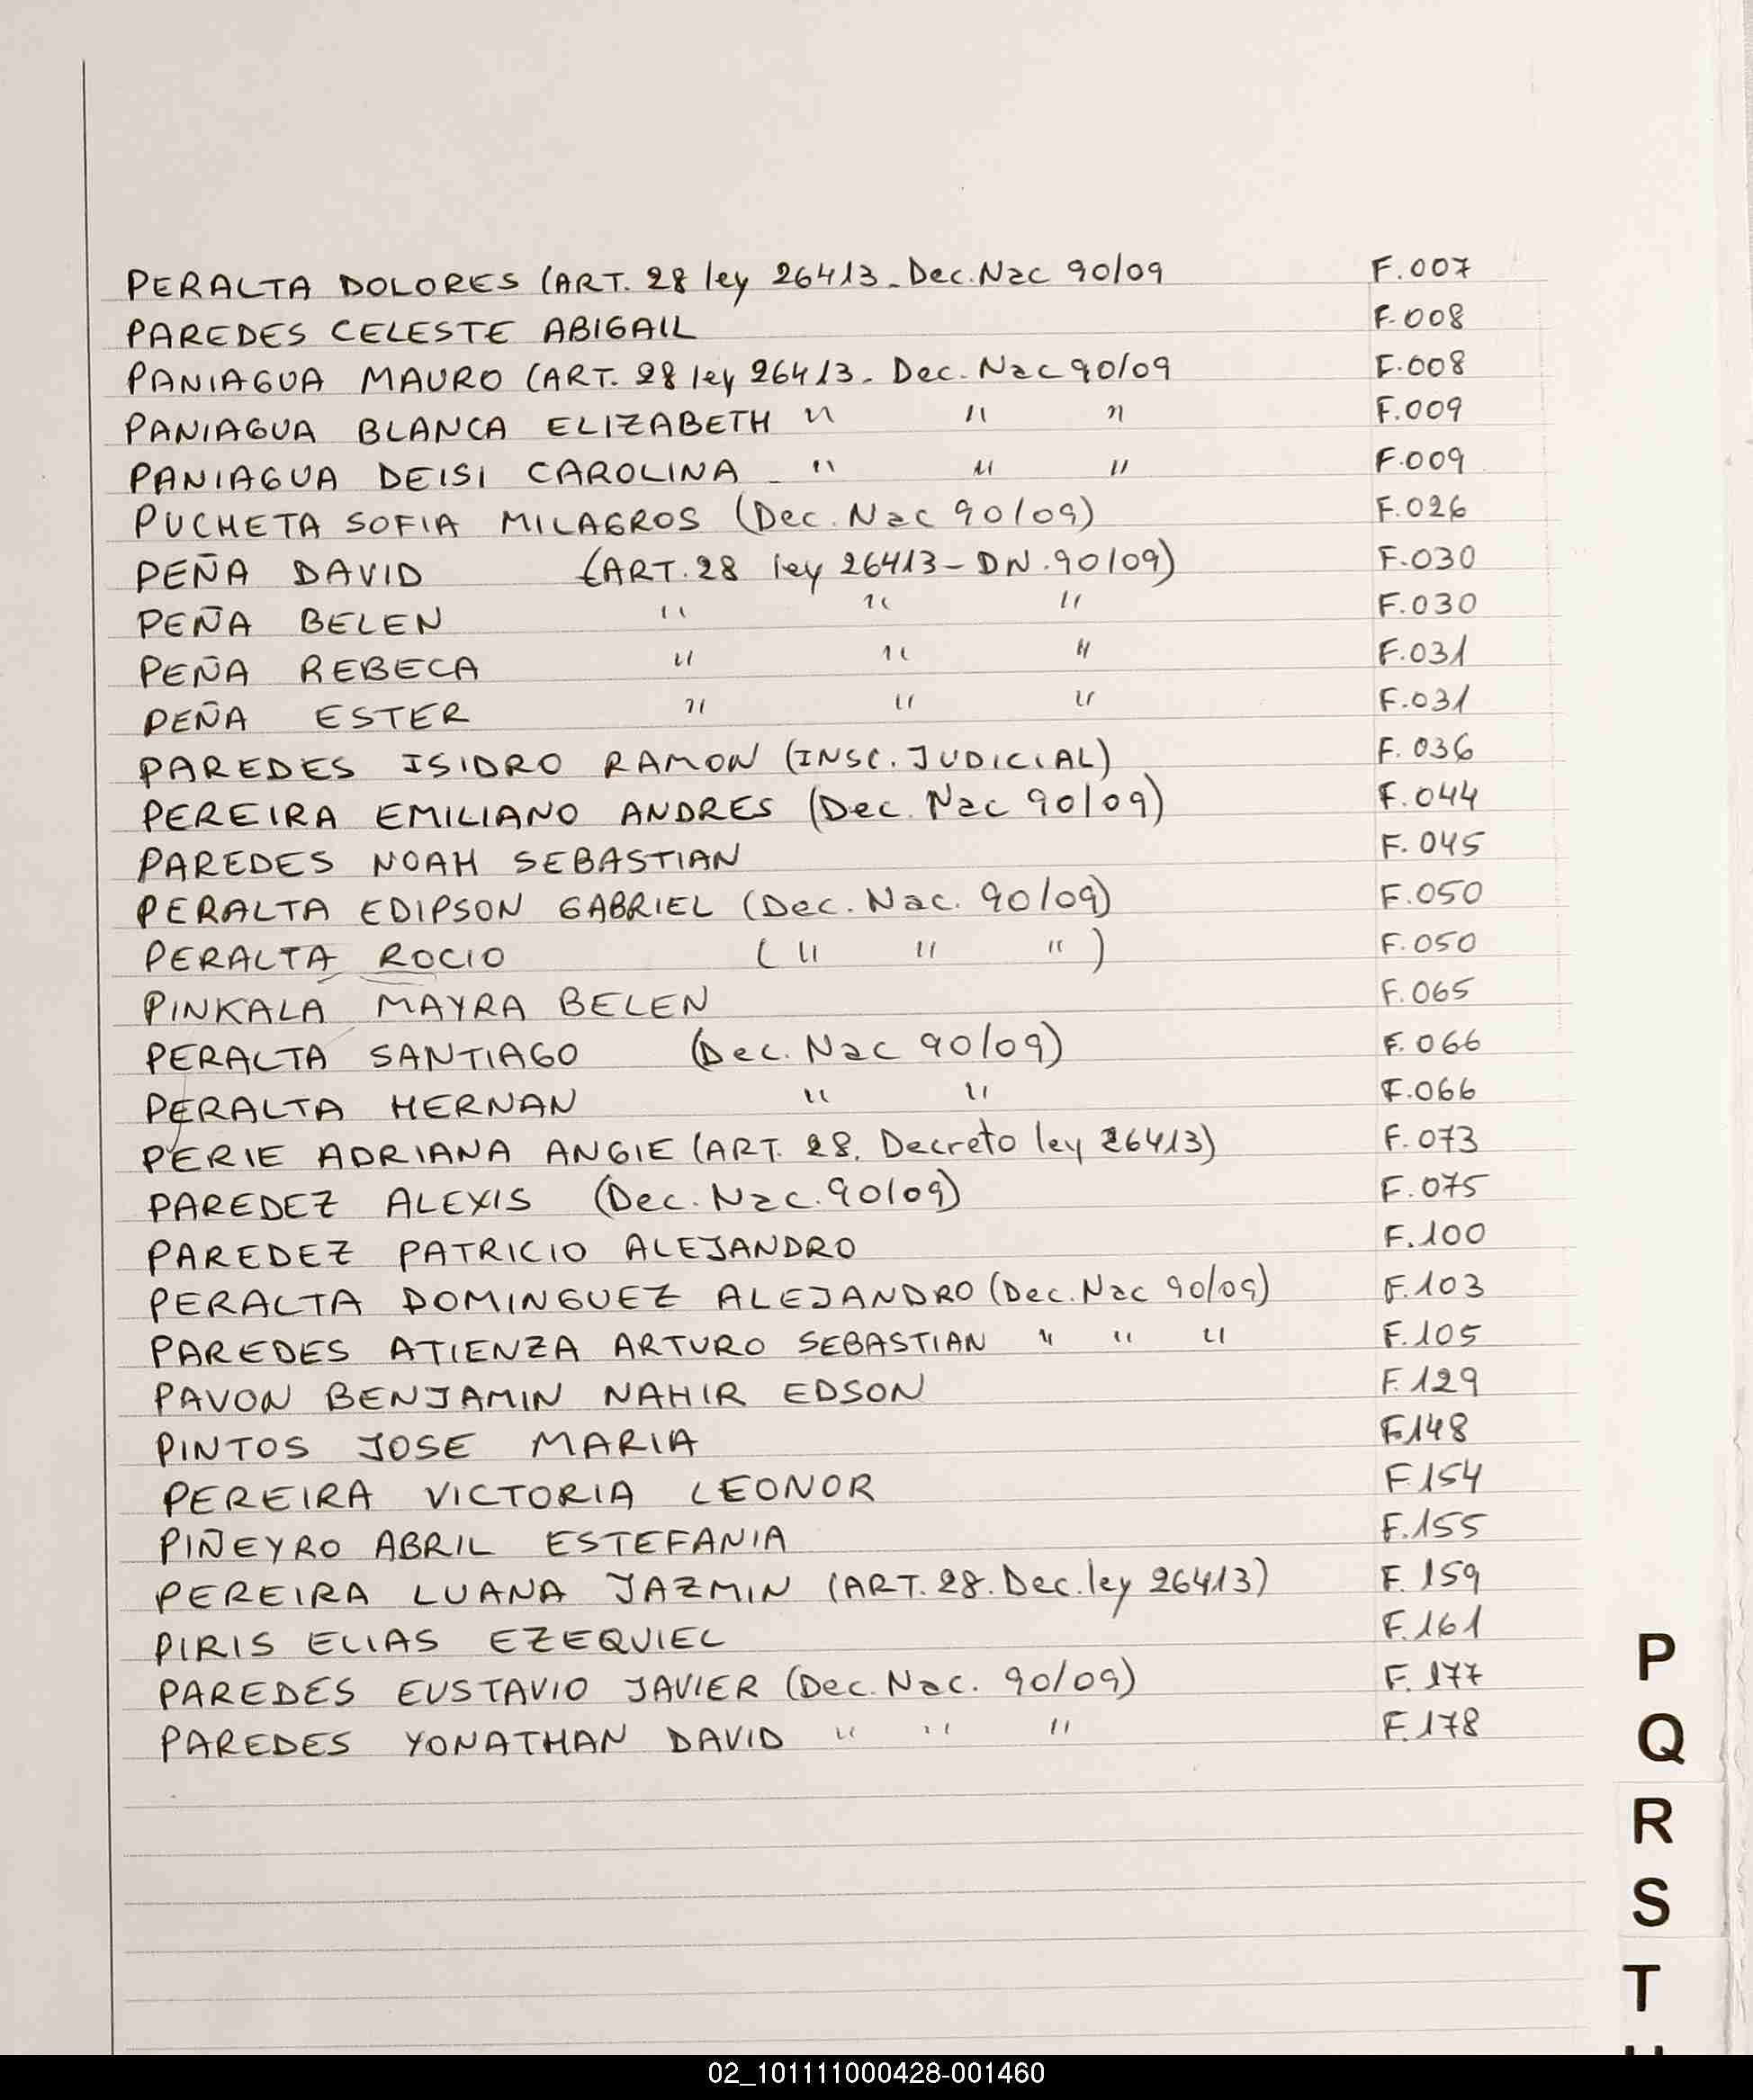 PERALTA DOLORES (ART. 28 ley 26413 - Dec. Nac 90/09 F.007
PAREDES CELESTE ABIGAIL F.008
PANIAGUA MAURO (ART. 28 ley 26413. Dec. Nac 90/09 F.008
PANIAGUA BLANCA ELIZABETH " " " F.009
PANIAGUA DEISI CAROLINA - " " " F.009
PUCHETA SOFIA MILAGROS (Dec. Nac 90/09) F.026
PEÑA DAVID (ART. 28 ley 26413 - DN. 90/09) F.030
PEÑA BELEN " " " F.030
PEÑA REBECA " " " F.031
PEÑA ESTER " " " F.031
PAREDES ISIDRO RAMON (INSC. JUDICIAL) F. 036
PEREIRA EMILIANO ANDRES (Dec. Nac 90/09) F.044
PAREDES NOAH SEBASTIAN F. 045
PERALTA EDIPSON GABRIEL (Dec. Nac. 90/09) F.050
PERALTA ROCIO ( " " " ) F.050
PINKALA MAYRA BELEN F.065
PERALTA SANTIAGO (Dec. Nac 90/09) F. 066
PERALTA HERNAN " " F.066
PERIE ADRIANA ANGIE (ART. 28. Decreto ley 26413) F. 073
PAREDEZ ALEXIS (Dec. Nac. 90/09) F. 075
PAREDEZ PATRICIO ALEJANDRO F.100
PERALTA DOMINGUEZ ALEJANDRO (Dec. Nac 90/09) F.103
PAREDES ATIENZA ARTURO SEBASTIAN " " " F.105
PAVON BENJAMIN NAHIR EDSON F.129
PINTOS JOSE MARIA F.148
PEREIRA VICTORIA LEONOR F.154
PIÑEYRO ABRIL ESTEFANIA F.155
PEREIRA LUANA JAZMIN (ART. 28. Dec. ley 26413) F. 159
PIRIS ELIAS EZEQUIEL F.161
PAREDES EUSTAVIO JAVIER (Dec. Nac. 90/09) F. 177
PAREDES YONATHAN DAVID " " " F.178
P
Q
R
S
T
02_101111000428-001460